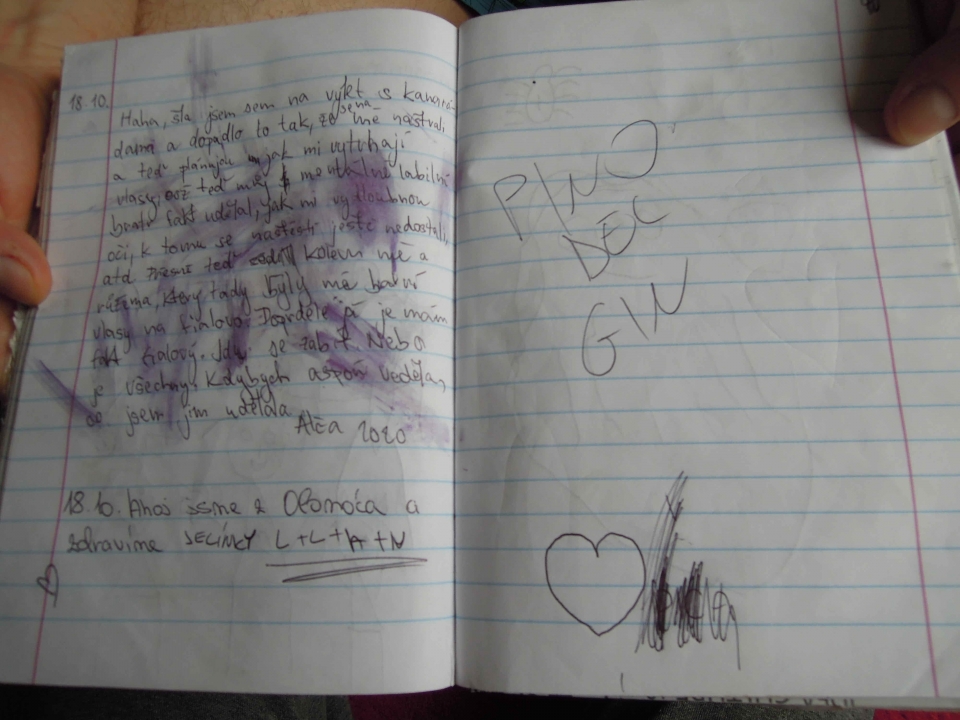 18.10.
Haha, šla jsem sem na výlet s kamará-
dama a dopadlo to tak, že sena mě naštvali
a teď plánujou jak mi vytrhají
vlasy, což teď můj mentálně labilní
bratr fakt udělal, jak mi vydloubnou
oči, k tomu se naštěstí ještě nedostali,
atd Přesně teď kolem mě a
růžema, který tady byly mě barví
vlasy na fialovo. Doprdele já je mám
fakt Jdu se zabít. Nebo
je všechny. Kdybych aspoň věděla,
co jsem jim udělala
Alča 2020
18.10. Ahoj jsme z Olomóca a
zdravíme L+L+A+N
PIVO
DĚC
GIN